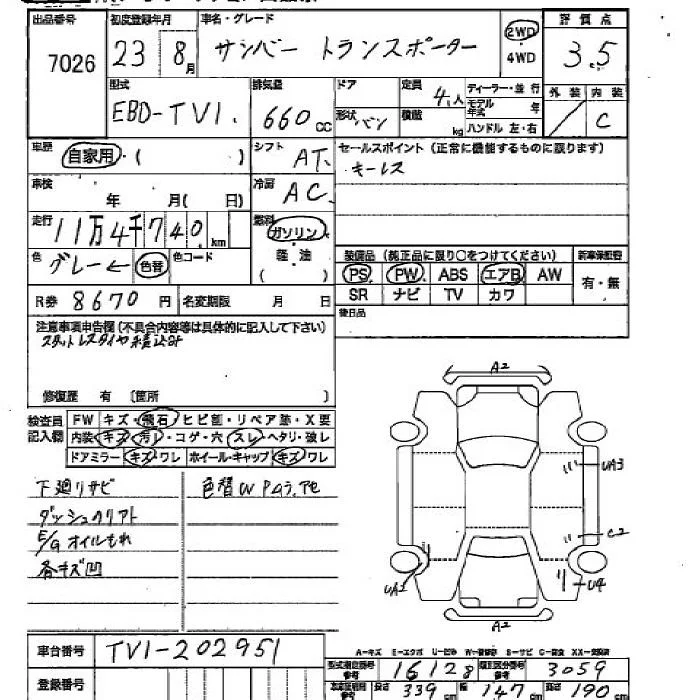 出品番号 初度登録年月 車名・グレード 評価点
7026 23 8月 サンバー トランスポーター 2WD 4WD 3.5
型式 排気量 ドア 定員 ディーラー・並行 外装 内装
EBD-TV1. 660cc 4人 モデル年式 年 C
形状 バン 積載 kg ハンドル 左・右
車歴 自家用・( ) シフト AT. セールスポイント (正常に機能するものに限ります)
キーレス
車検 年 月(日) 冷房 AC
走行 11万4千740.km 燃料 ガソリン・軽油 ( )
色 グレー← 色替 色コード
装備品 (純正品に限り○をつけてください) 新車保証書
PS PW ABS エアB AW 有・無
SR ナビ TV カワ
R券 8670円 名変期限 月 日
後日品
注意事項申告欄(不具合内容等は具体的に記入して下さい)
スタットレスタイヤ積込み
修復歴 有 〔箇所 〕
検査員記入欄 FW キズ・飛石・ヒビ割・リペア跡・X要
内装・キズ・汚れ・コゲ・穴・スレ・ヘタリ・破レ
ドアミラー・キズ・ワレ ホイール・キャップ・キズ・ワレ
下廻りサビ 色替W
ダッシュクリアト
E/Gオイルもれ
各キズ凹
A2
UA3
C2
UA2
U4
A2
車台番号 TV1-202951
登録番号
A-キズ E-エクボ U-凹み W-補修跡 S-サビ C-腐食 XX-交換済
型式指定番号 参考 16128 類別区分番号 参考 3059
参考 長さ 339cm 幅 147cm 高さ 190cm